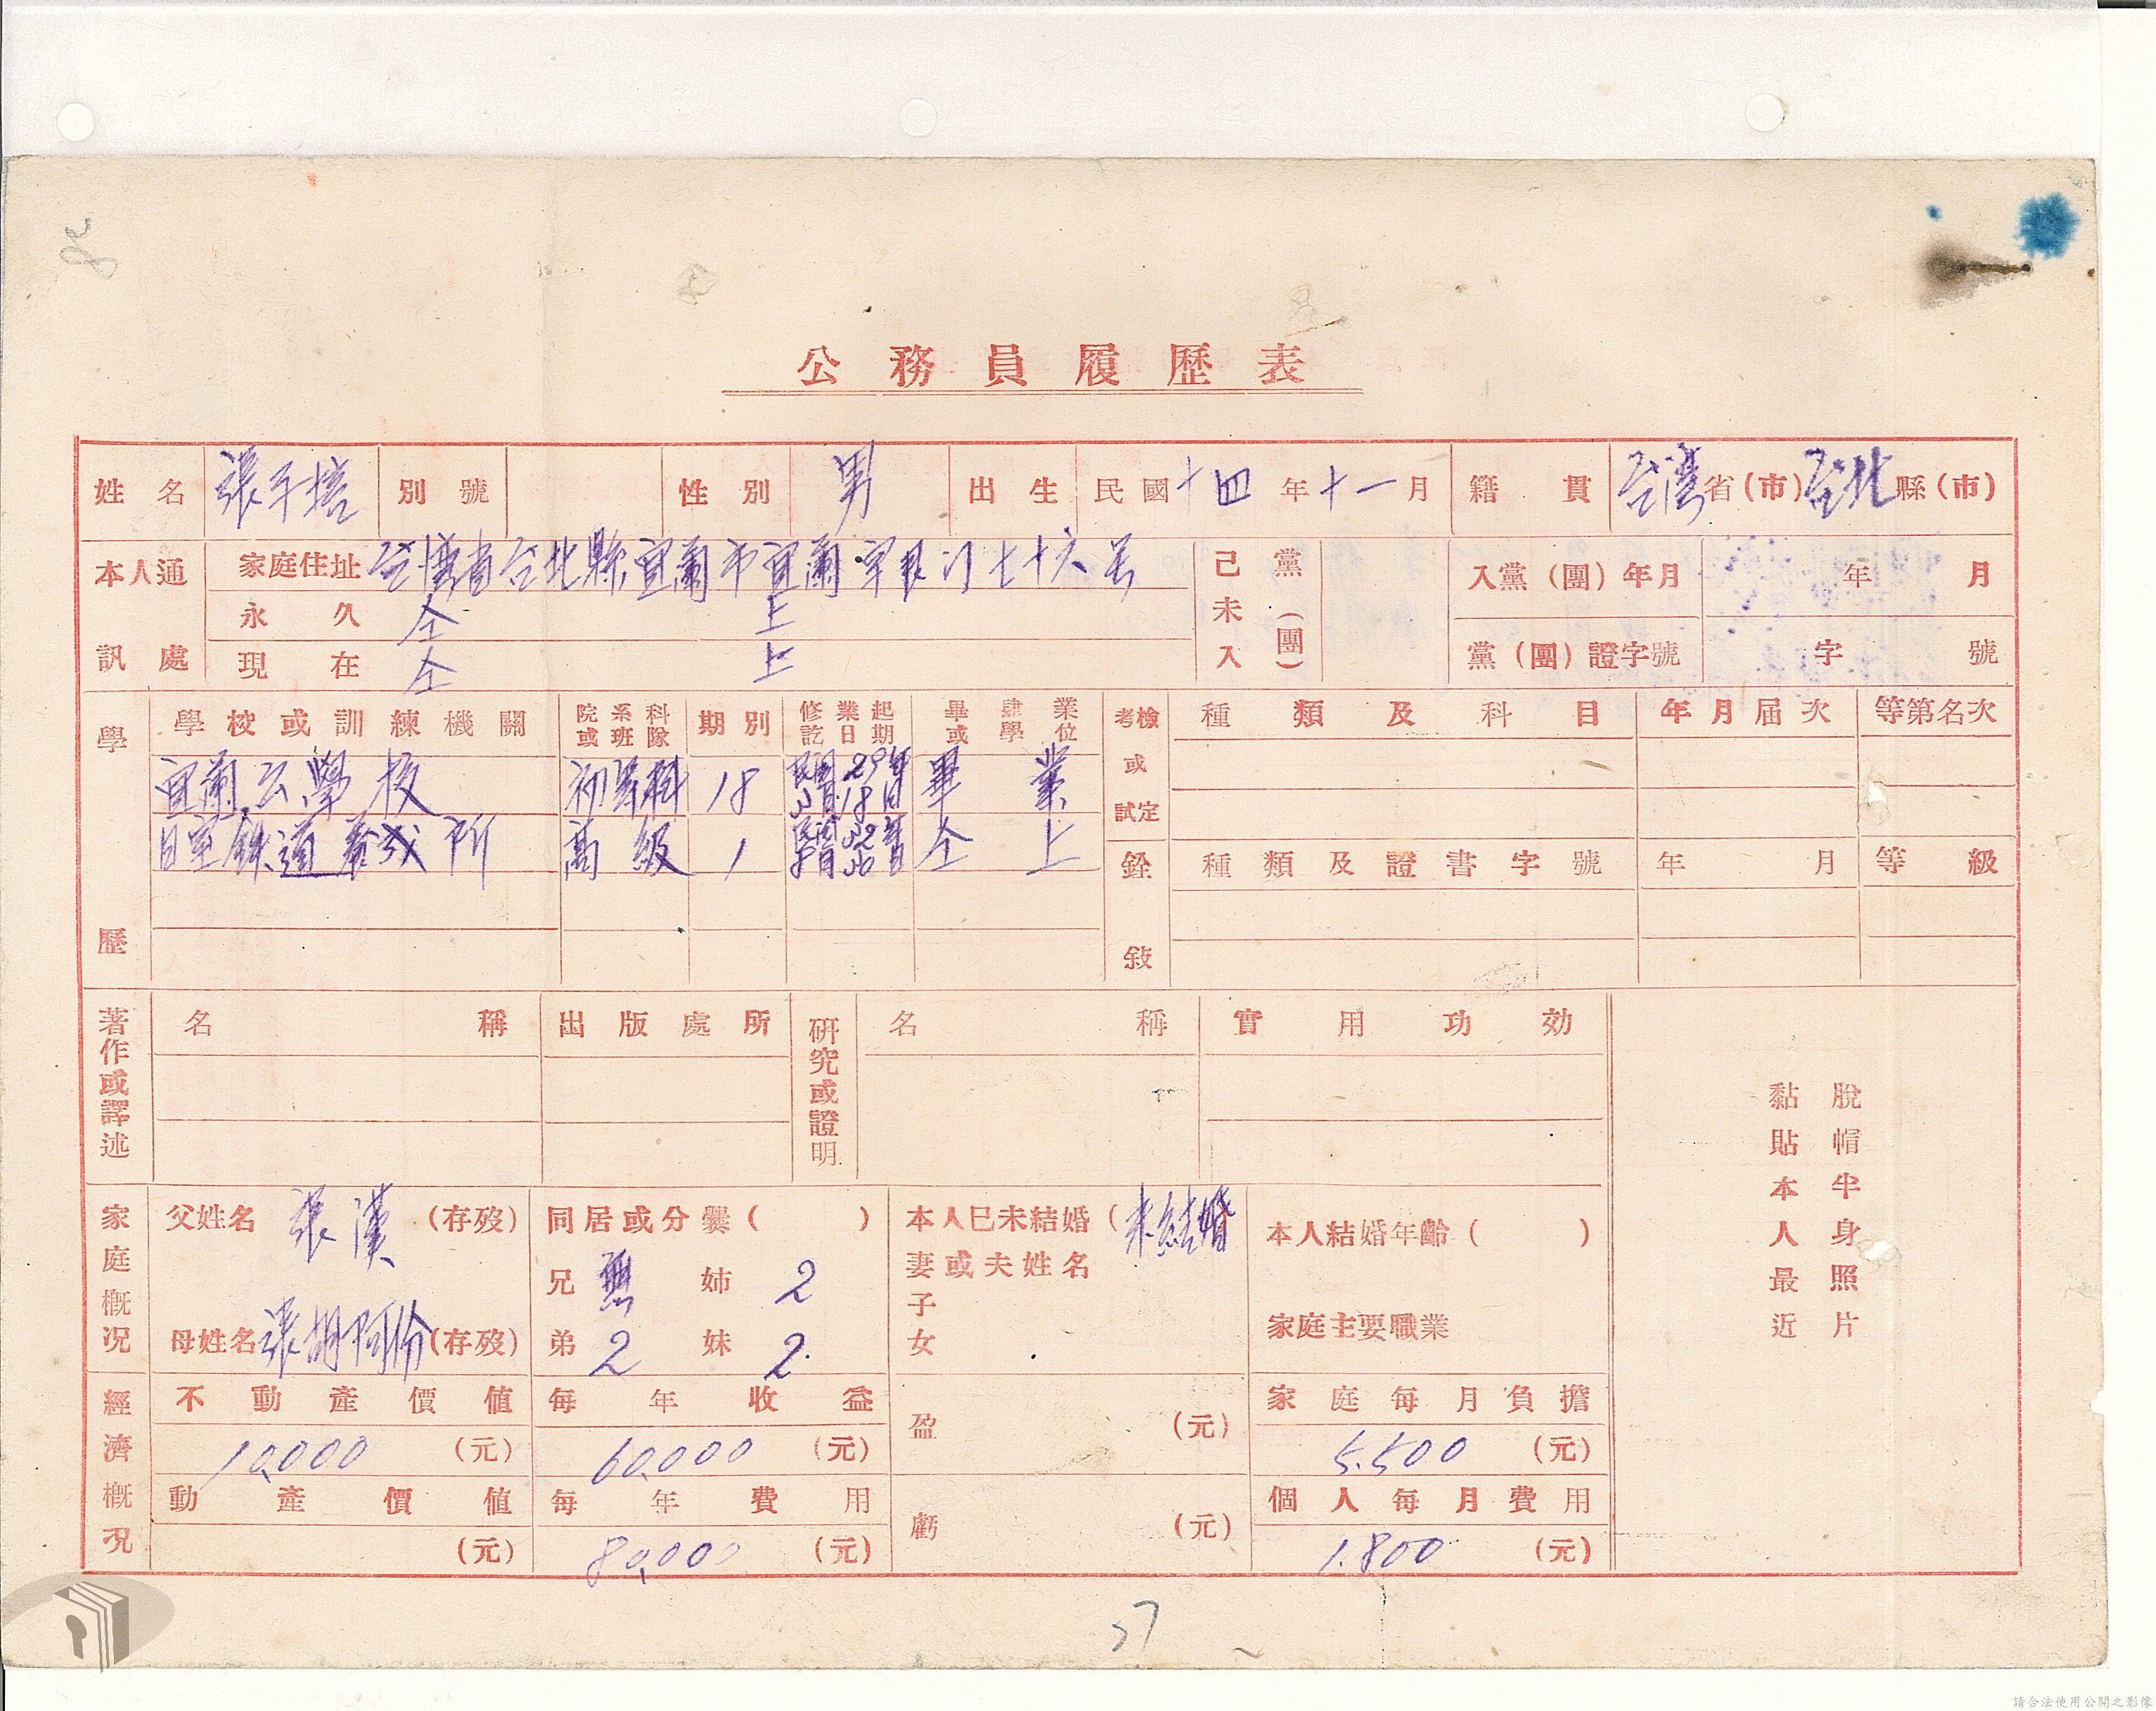 公務員履歷表
姓名 張子培 別號 性別 男 出生 民國十四年十一月 籍貫 台灣省(市)台北縣(市)
本人通訊處 家庭住址 台灣省台北縣宜蘭市宜蘭字艮门七十六号
永久 仝上
現在 仝上
已未入黨(團) 入黨(團)年月 年 月
黨(團)證字號 字 號
學歷 學校或訓練機關 院系科或班隊 期別 修業起訖日期 畢肄業或學位
宜蘭公學校 初等科 18 民國29年3月18日 畢業
台室鉄道養成所 高級 1 仝上
考檢或試定 種類及科目 年月届次 等第名次
銓敍 種類及證書字號 年月 等級
著作或譯述 名稱 出版處所 研究或證明 名稱 實用功効
黏貼本人最近脫帽半身照片
家庭概況 父姓名 張漢 (存殁) 同居或分爨( ) 本人已未結婚(未結婚 本人結婚年齡( )
兄 無 姉 2 妻或夫姓名
子
母姓名 張胡阿份 (存殁) 弟 2 妹 2 女 家庭主要職業
經濟概況 不動產價值 每年收益 盈 (元) 家庭每月負擔
10,000 (元) 60,000 (元) 5.500 (元)
動產價值 每年費用 虧 (元) 個人每月費用
(元) 80,000 (元) 1.800 (元)
37
請合法使用公開之影像